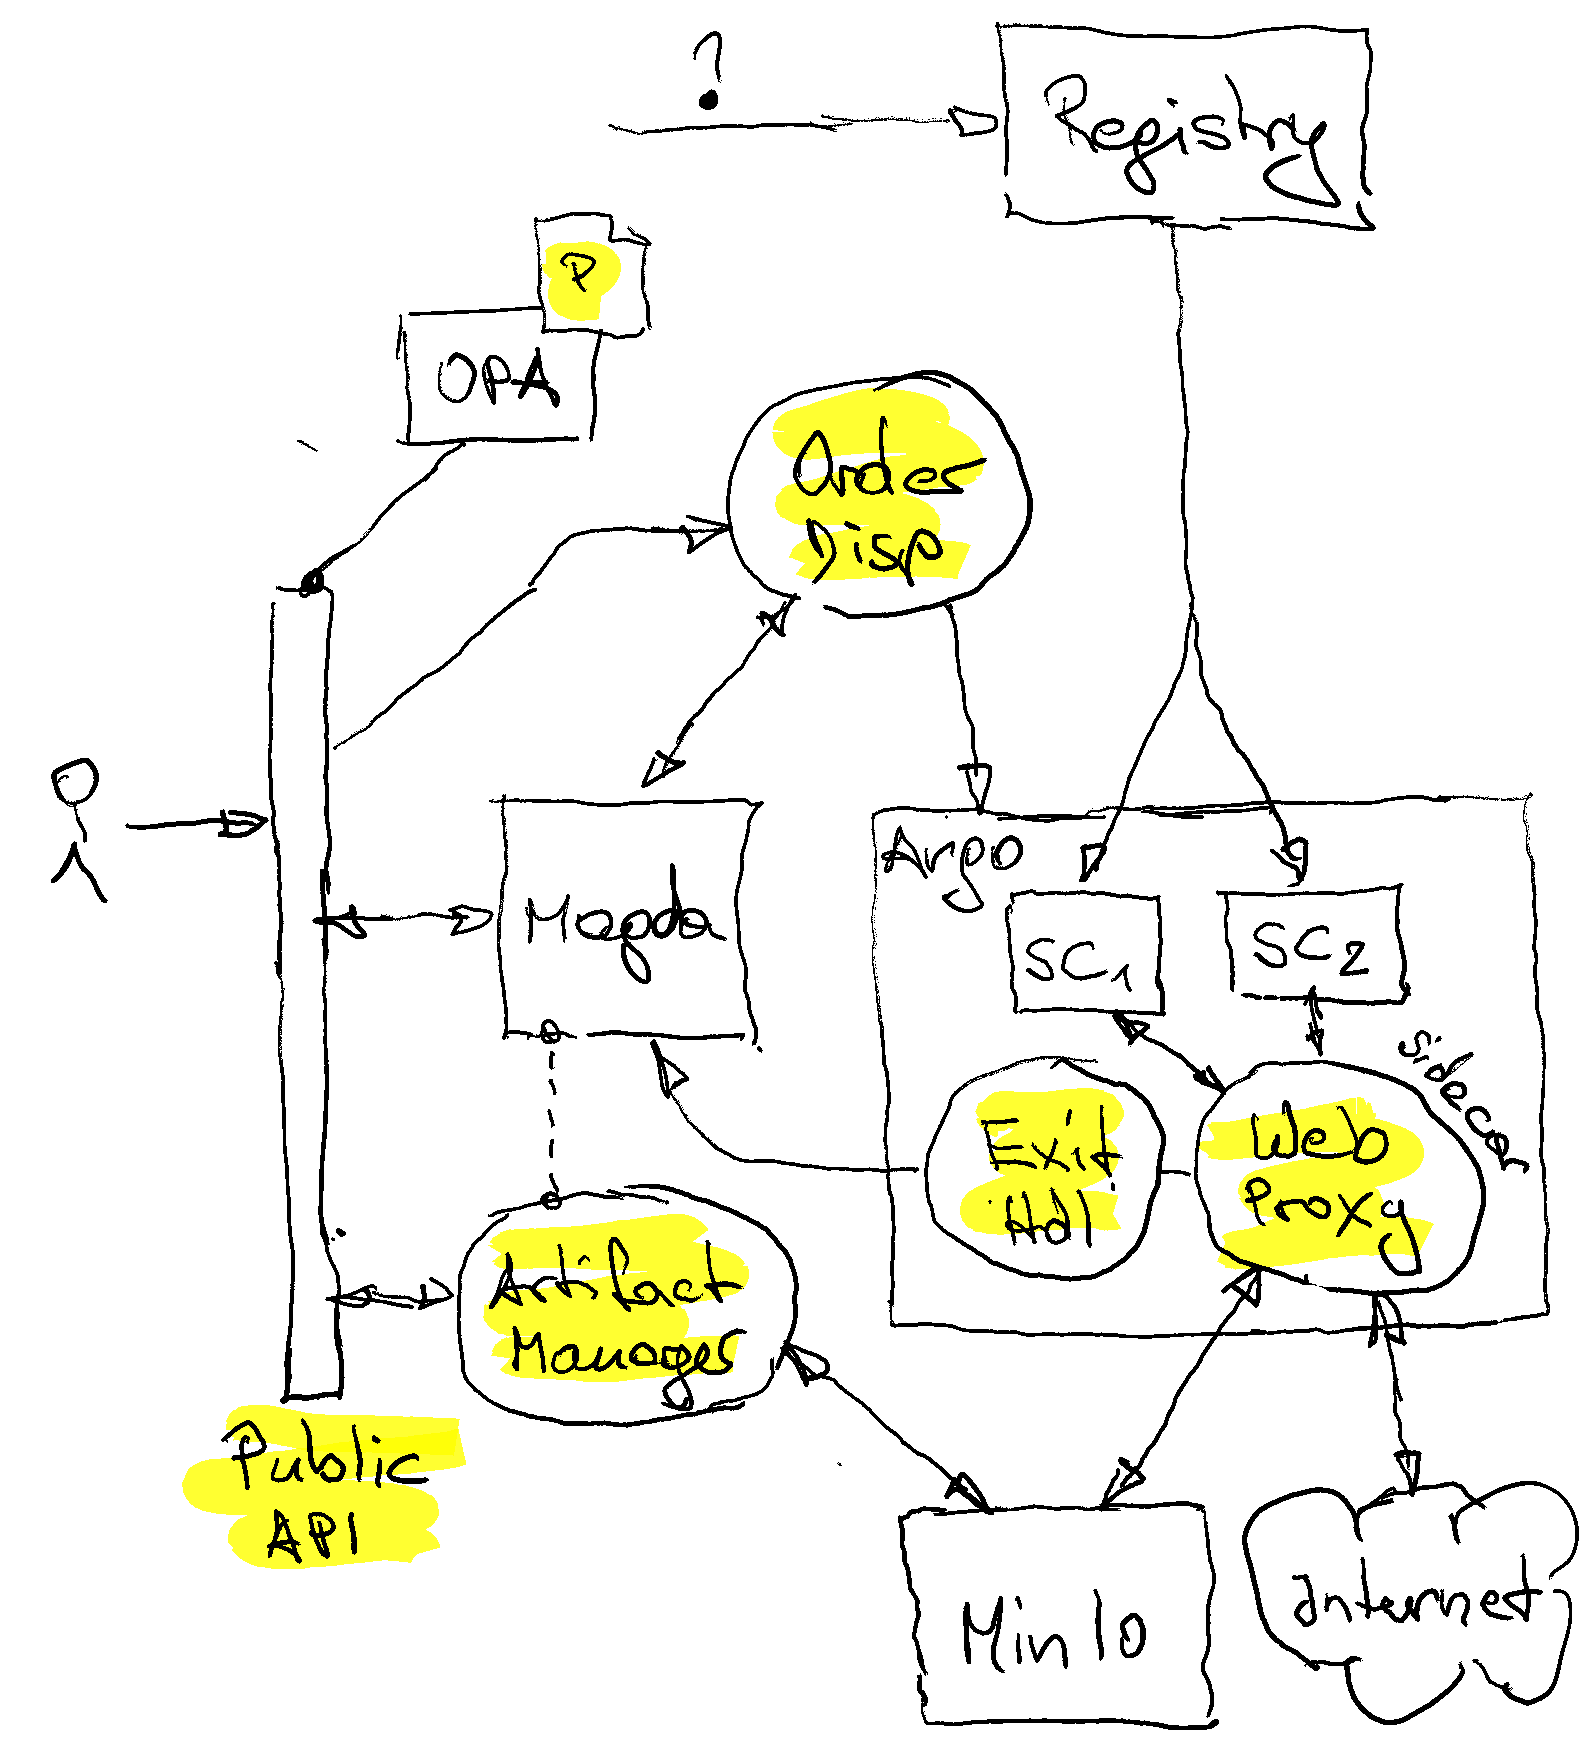 ?
Registry
P
OPA
Order
Disp
Argo
Magda
SC1
SC2
sidecar
Exit
Hdl
Web
Proxy
Artifact
Manager
Public
API
MinIO
Internet